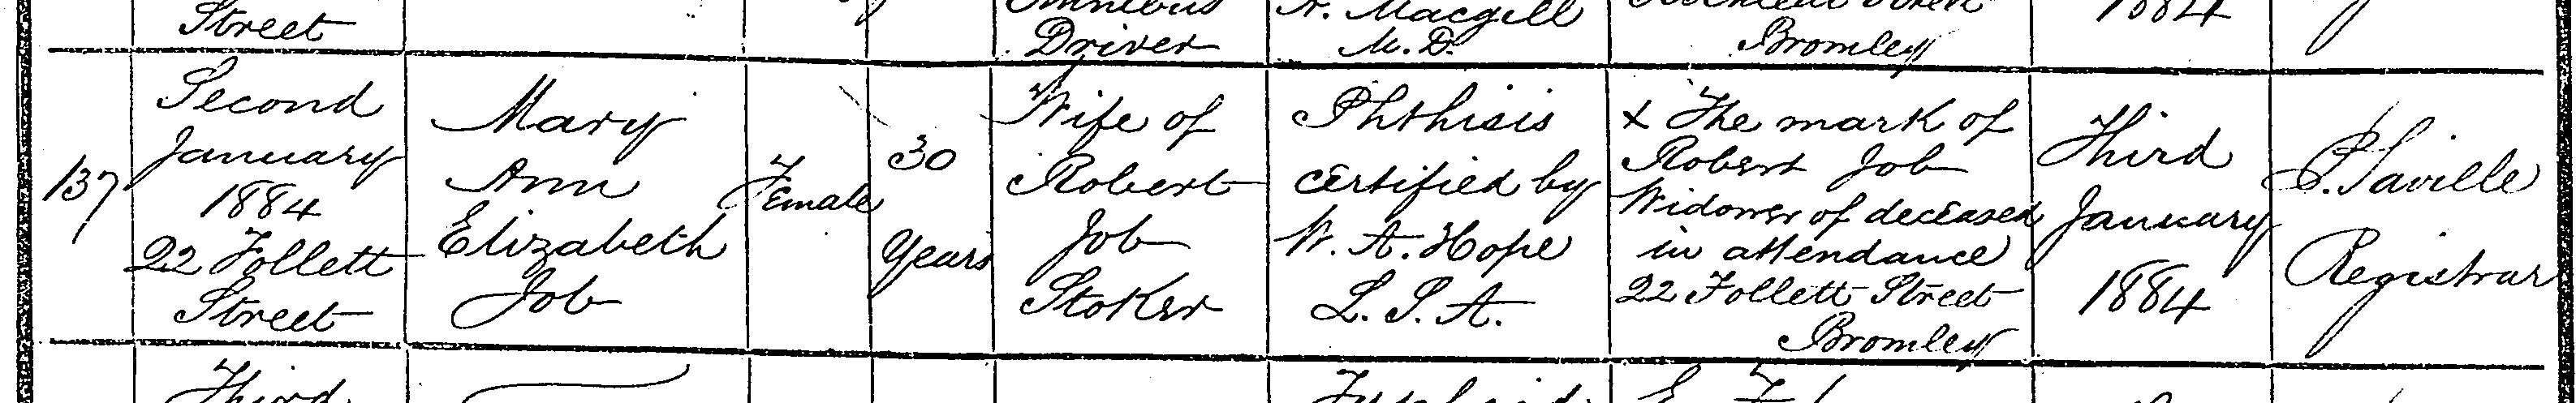 Street
Omnibus
Driver
A. Macgill
M.D.
Bromley
1884
137
Second
January
1884
22 Follett
Street
Mary
Ann
Elizabeth
Job
Female
30
Years
Wife of
Robert
Job
Stoker
Phthisis
certified by
W. A. Hope
L. S. A.
X The mark of
Robert Job
Widower of deceased
in attendance
22 Follett Street
Bromley
Third
January
1884
Saville
Registrar
Third